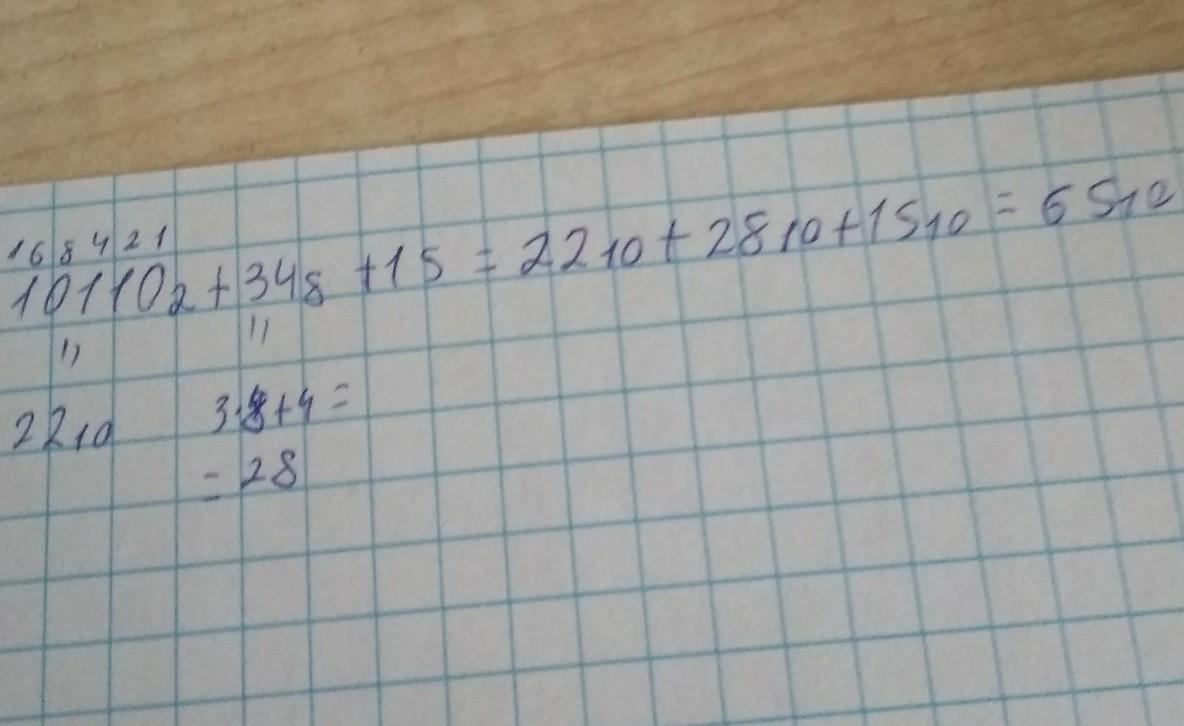 16 8 4 2 1
10110₂ + 34₈ + 15 = 22₁₀ + 28₁₀ + 15₁₀ = 65₁₀
" "
22₁₀ 3·8+4 =
= 28